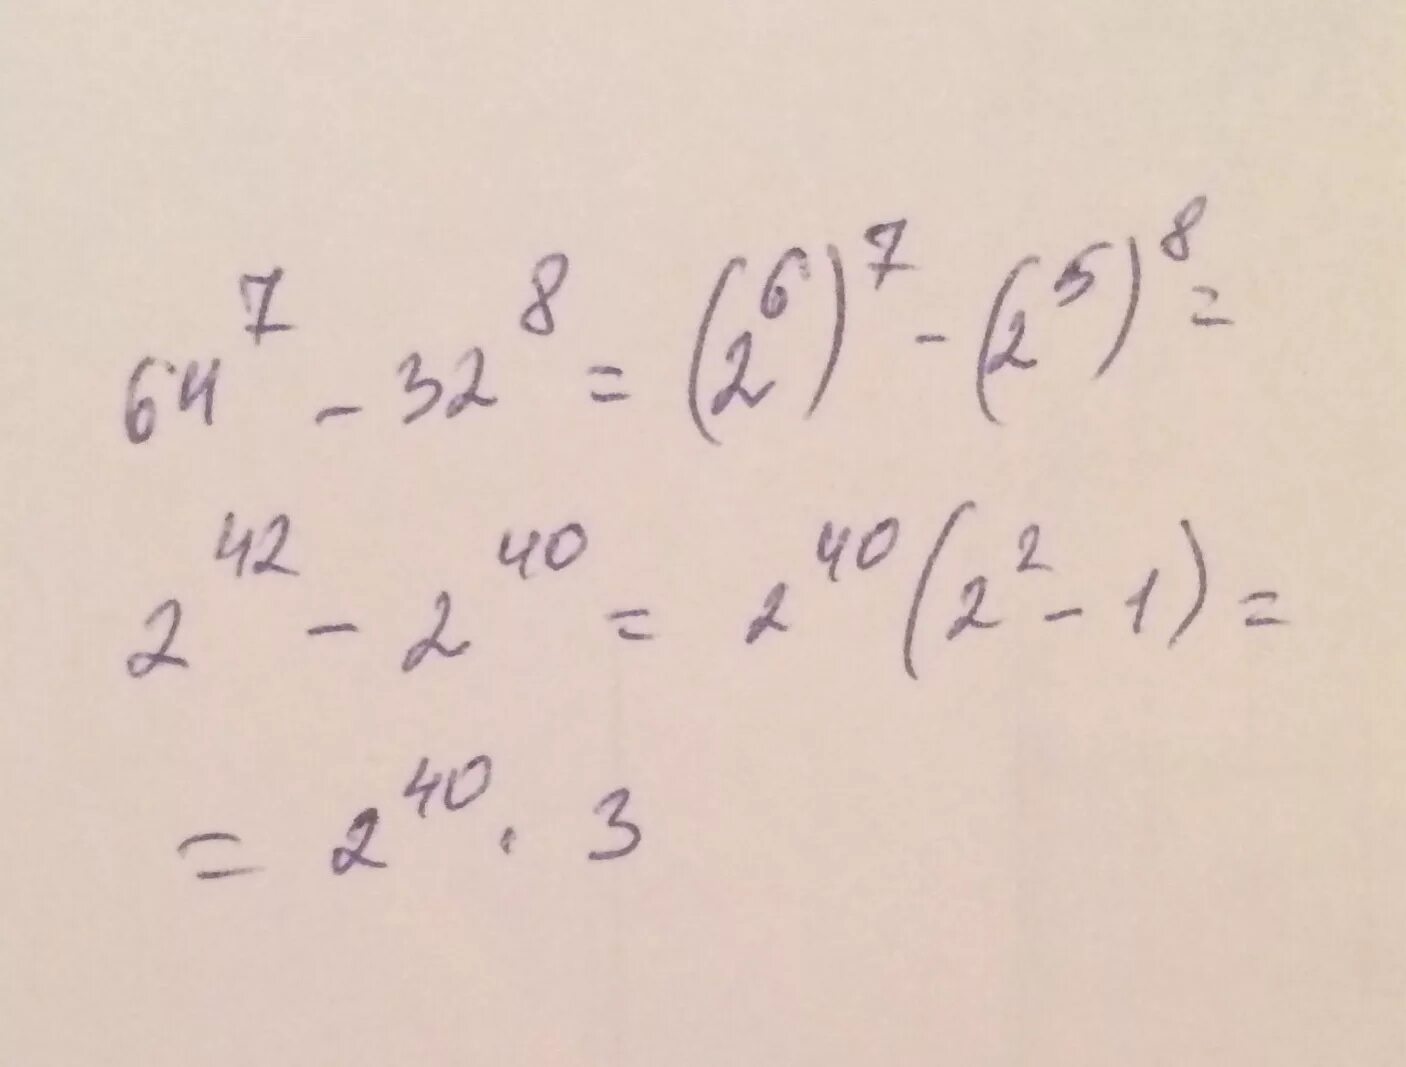 64⁷ - 32⁸ = (2⁶)⁷ - (2⁵)⁸ =
2⁴² - 2⁴⁰ = 2⁴⁰ (2² - 1) =
= 2⁴⁰ · 3